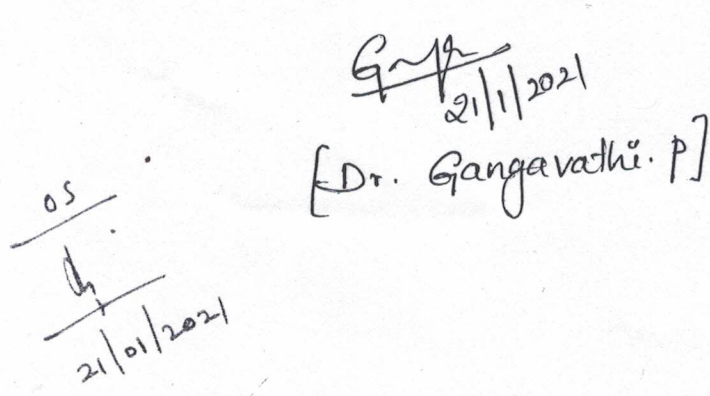 21/1/2021
[Dr. Gangavathi. P]
os
21/01/2021